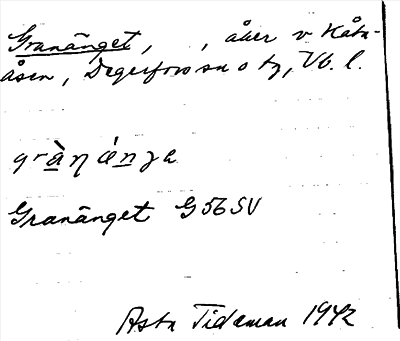 Granänget, , åker v Håbn-
åsen, Degerfors sn o tg, Vb. l.
Granänget G56SV
Asta Tideman 1942